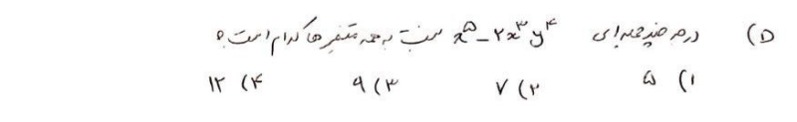 ۵) درجه چندجمله‌ای x^۵ - ۲x^۳y^۴ نسبت به همه متغیرها کدام است؟
۱) ۵ ۲) ۷ ۳) ۹ ۴) ۱۲